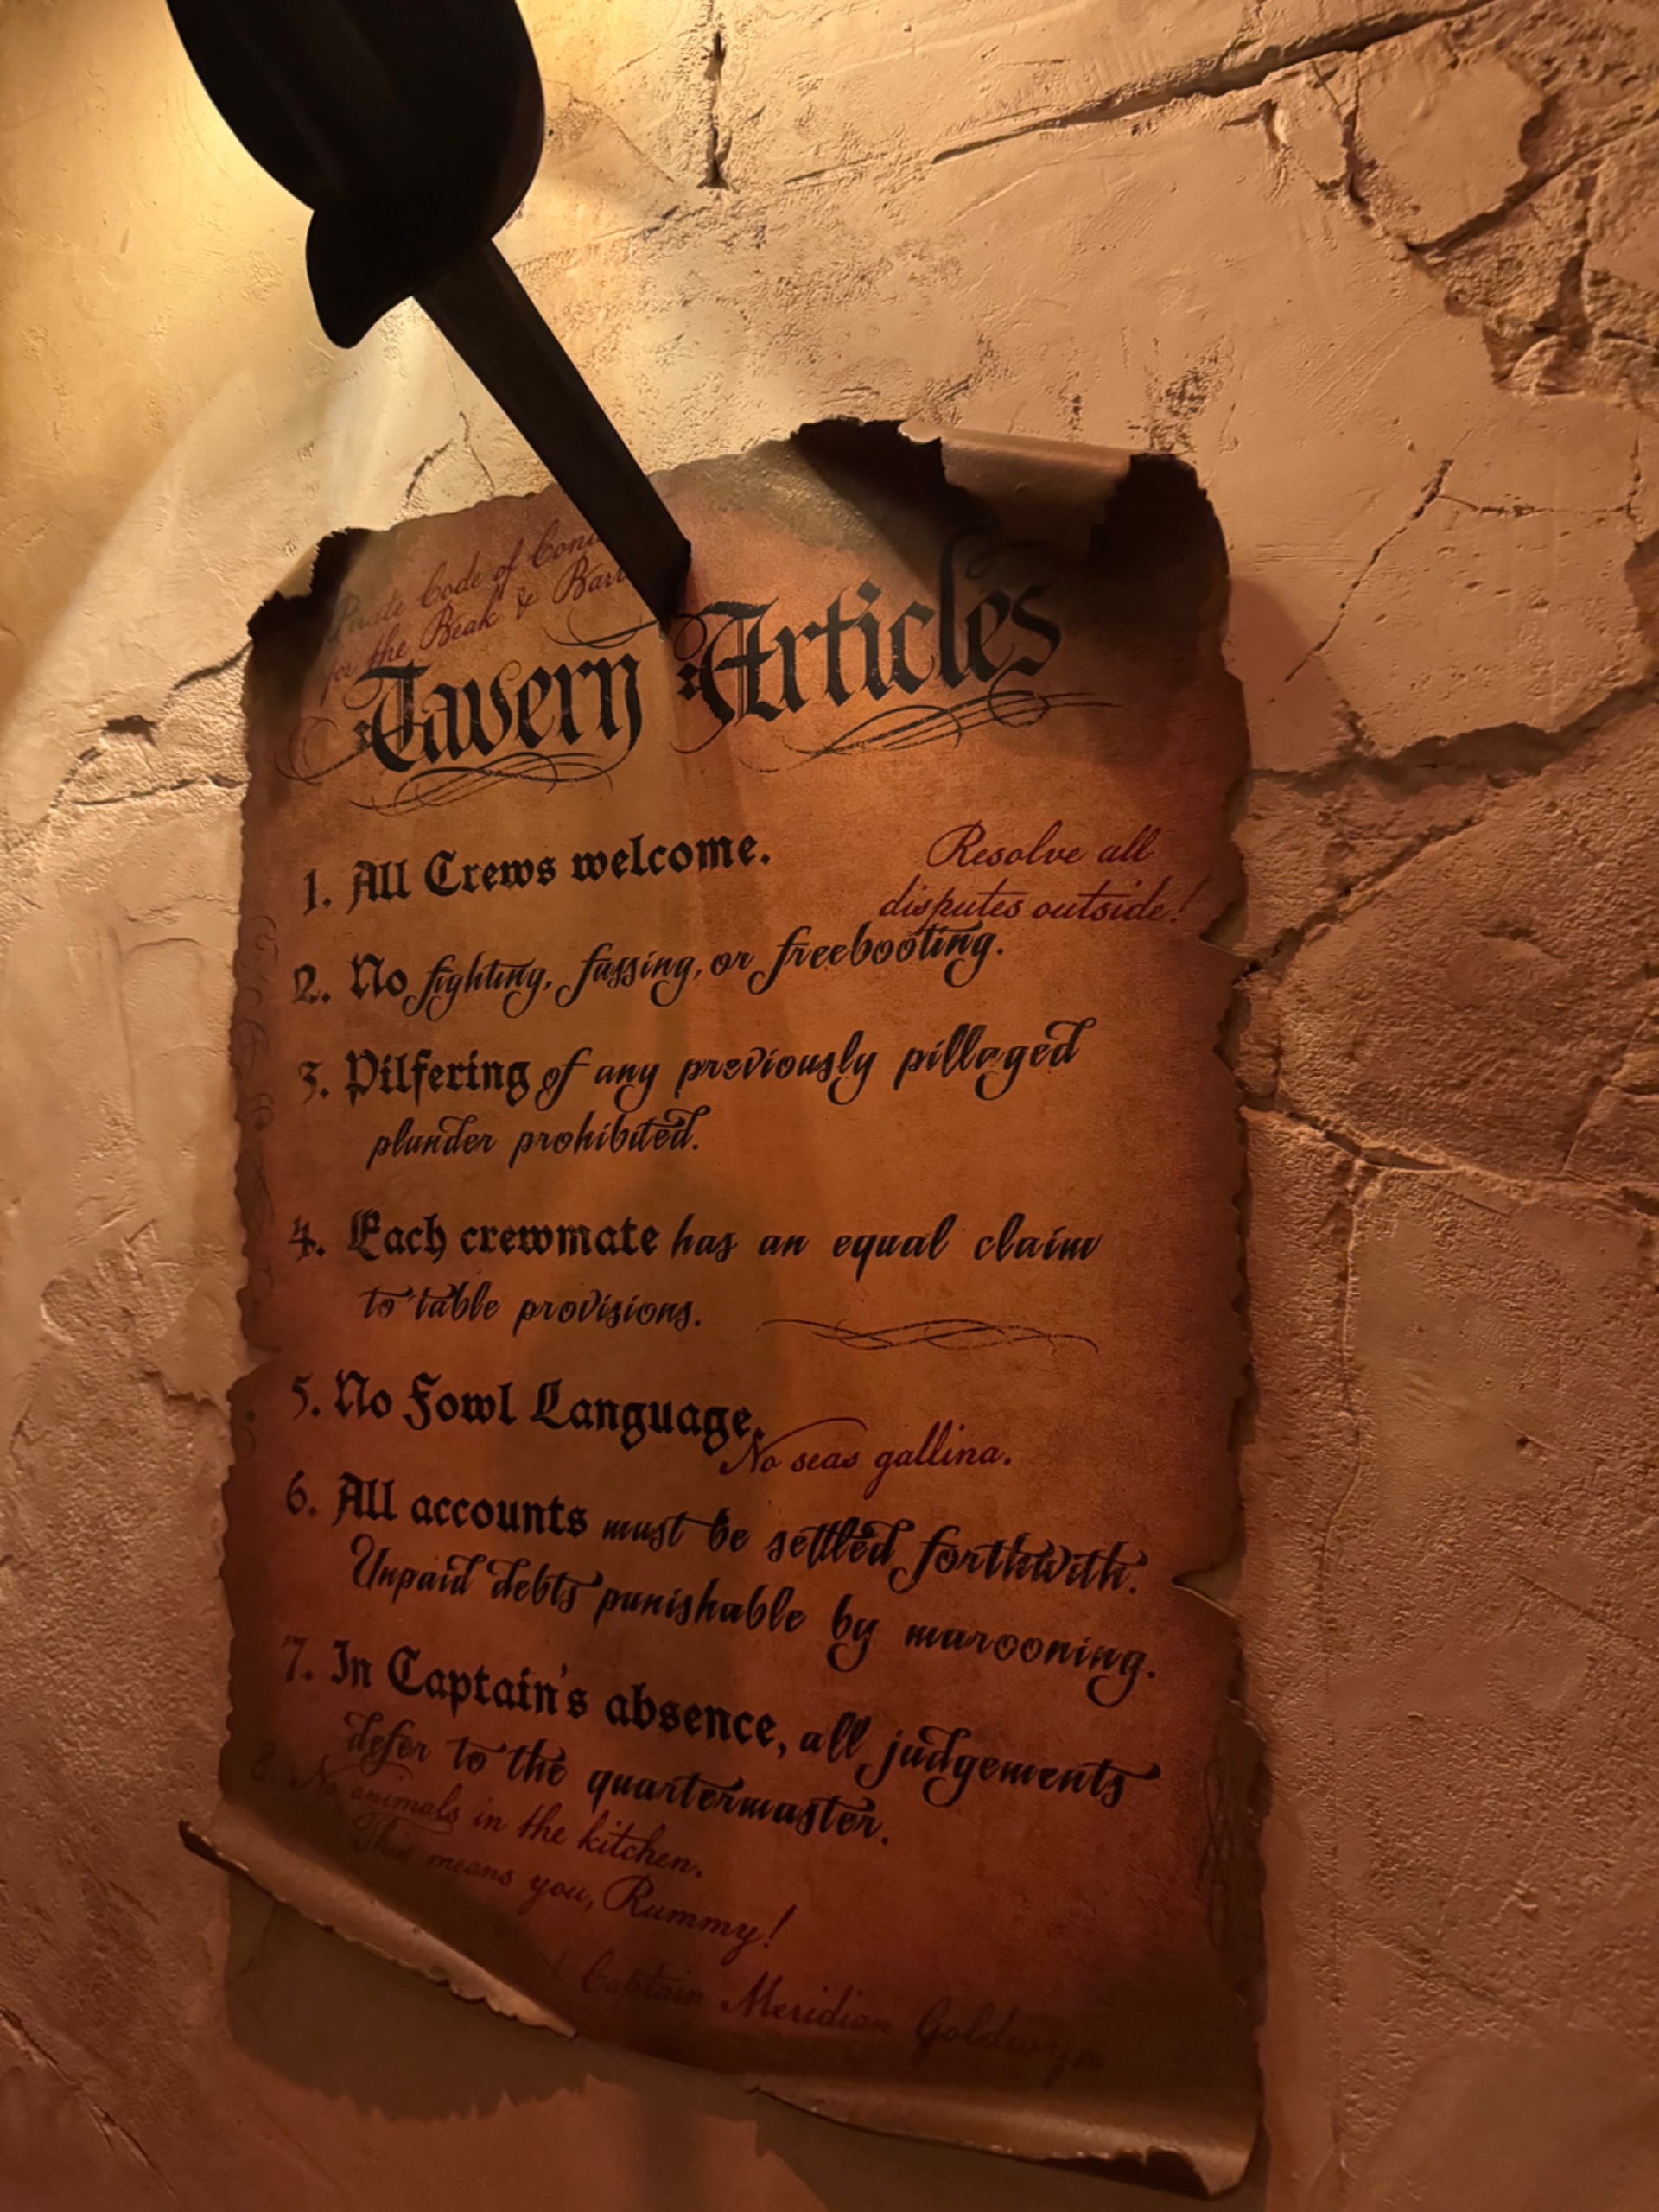 Pirate Code of
for the Beak &
Tavern Articles
1. All Crews welcome.
Resolve all
disputes outside!
2. No fighting, fussing, or freebooting.
3. Pilfering of any previously pillaged
plunder prohibited.
4. Each crewmate has an equal claim
to table provisions.
5. No Fowl Language.
No seas gallina.
6. All accounts must be settled forthwith.
Unpaid debts punishable by marooning.
7. In Captain's absence, all judgements
defer to the quartermaster.
8. No animals in the kitchen.
This means you, Rummy!
Captain Meridian Goldwyn